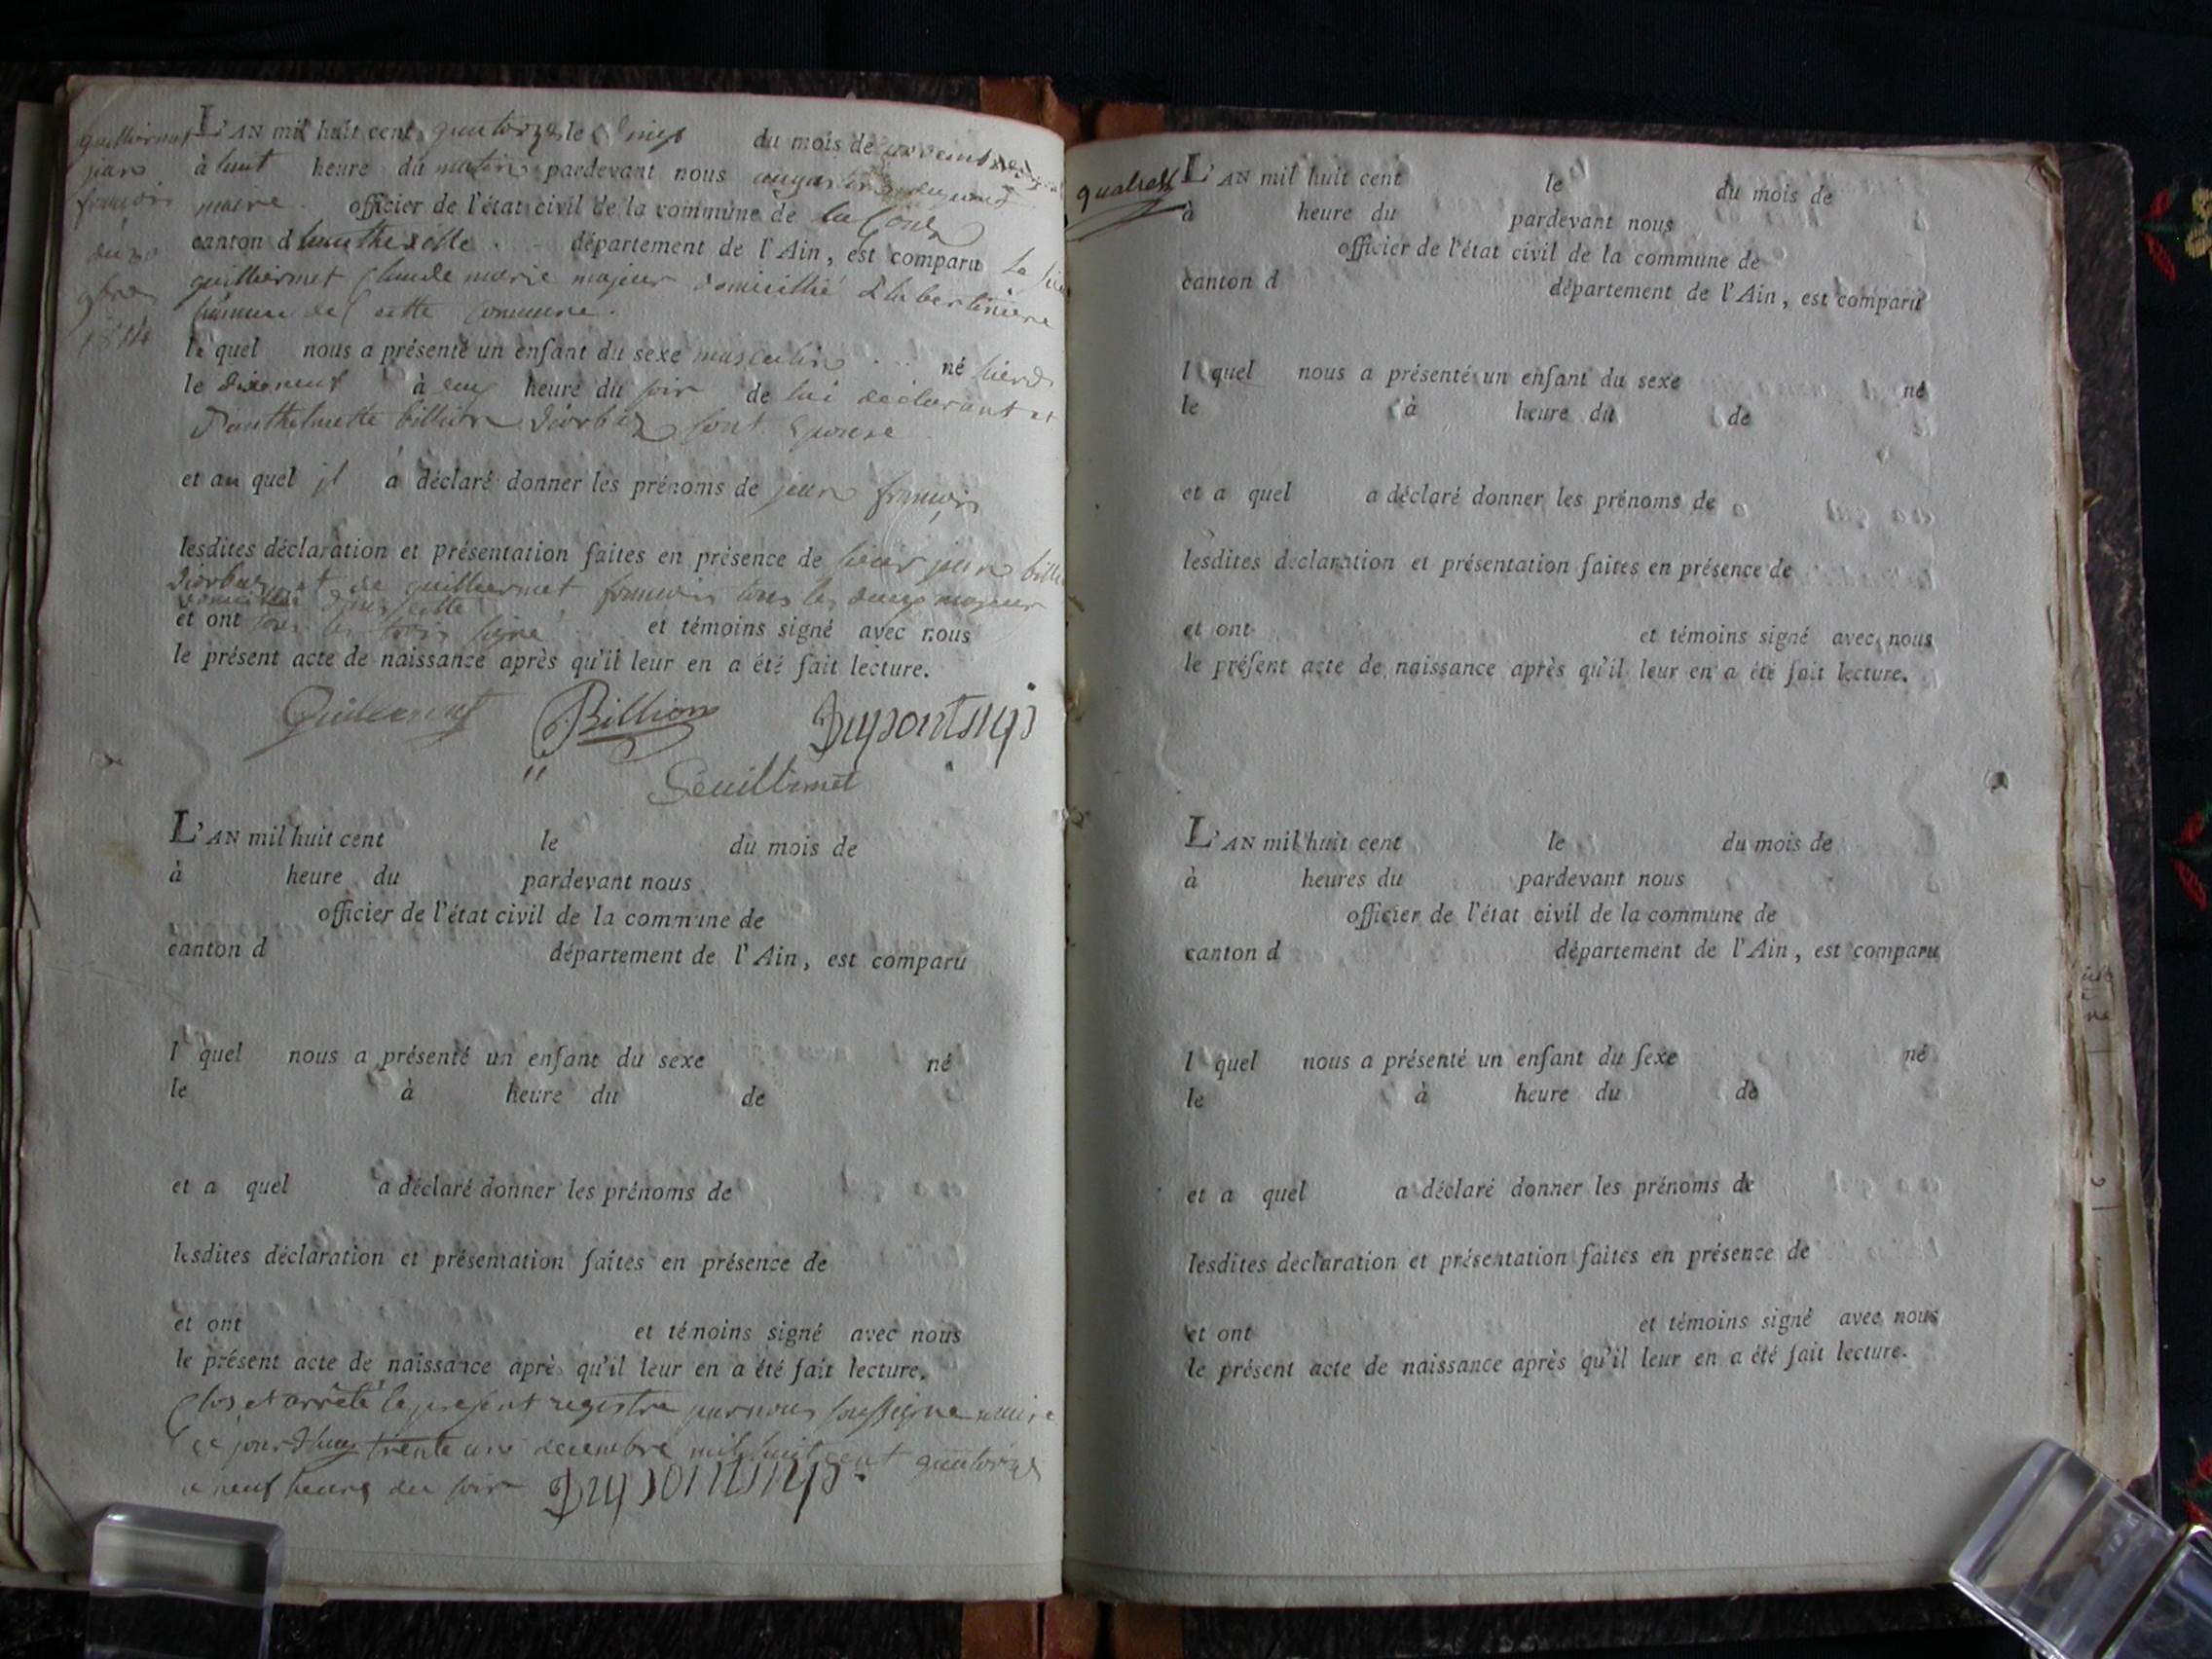 guilliermet
jean
françois
du 20
9bre
1814
L'AN mil huit cent quatorze le vingt du mois de novembre
à huit heure du matin pardevant nous augustin dupont
maire officier de l'état civil de la commune de
canton d hauteville département de l'Ain, est comparu le
guilliermet claude marie majeur domicillié à la bertinière
hameau de cette commune.
le quel nous a présenté un enfant du sexe masculin né hier
le dixneuf à heure du soir de lui déclarant et
D'anthelmette billion diorbaz son épouse
et au quel il a déclaré donner les prénoms de jean françois
lesdites déclaration et présentation faites en présence de sieur jean
diorbaz et de guilliermet françois tous les deux majeur
domicillié dans cette
et ont tous les trois signé et témoins signé avec nous
le présent acte de naissance après qu'il leur en a été fait lecture.
Guilliermet Billion Dupont mp
Guillermet
L'AN mil huit cent le du mois de
à heure du pardevant nous
officier de l'état civil de la commune de
canton d département de l'Ain, est comparu
l quel nous a présenté un enfant du sexe né
le à heure du de
et a quel a déclaré donner les prénoms de
lesdites déclaration et présentation faites en présence de
et ont et témoins signé avec nous
le présent acte de naissance après qu'il leur en a été fait lecture.
Clos et arrêté le present registre par nous soussigné maire
ce jour d'huy trente un decembre mil huit cent quatorze
a neuf heures du soir Dupont mp
L'AN mil huit cent le du mois de
à heure du pardevant nous
officier de l'état civil de la commune de
canton d département de l'Ain, est comparu
l quel nous a présenté un enfant du sexe né
le à heure du de
et a quel a déclaré donner les prénoms de
lesdites déclaration et présentation faites en présence de
et ont et témoins signé avec nous
le présent acte de naissance après qu'il leur en a été fait lecture.
L'AN mil huit cent le du mois de
à heures du pardevant nous
officier de l'état civil de la commune de
canton d département de l'Ain, est comparu
l quel nous a présenté un enfant du sexe né
le à heure du de
et a quel a déclaré donner les prénoms de
lesdites déclaration et présentation faites en présence de
et ont et témoins signé avec nous
le présent acte de naissance après qu'il leur en a été fait lecture.